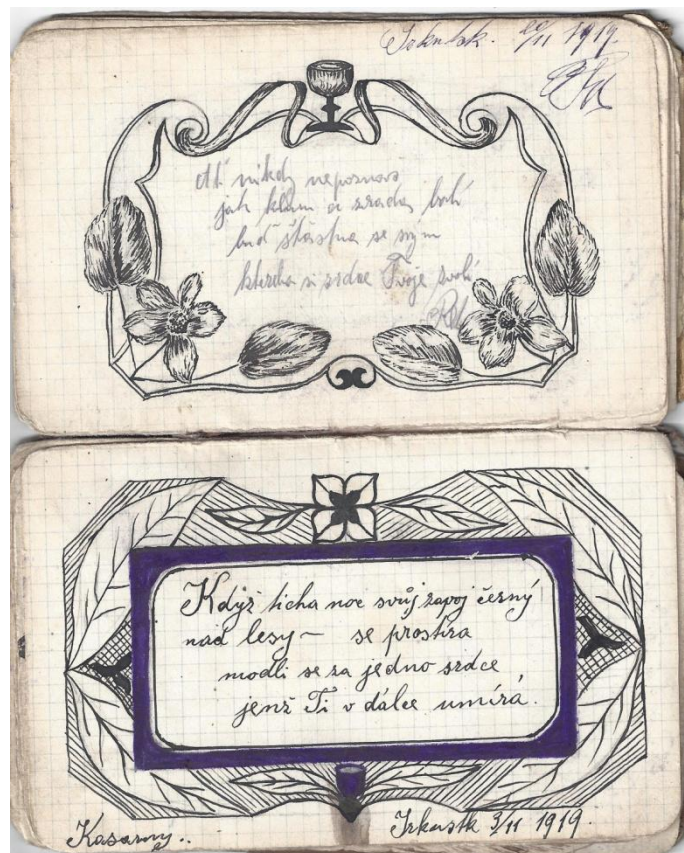 Irkutsk. 20/11 1919.
Ať nikdy nepoznáš
jak klam a zrada bolí
buď štastna se svym
kterého si srdce Tvoje zvolí
Když ticha noc svůj zapoj černý
nad lesy – se prostira
modli se za jedno srdce
jenž Ti v dálce umírá.
Kasarny..
Irkustk 3/11 1919.